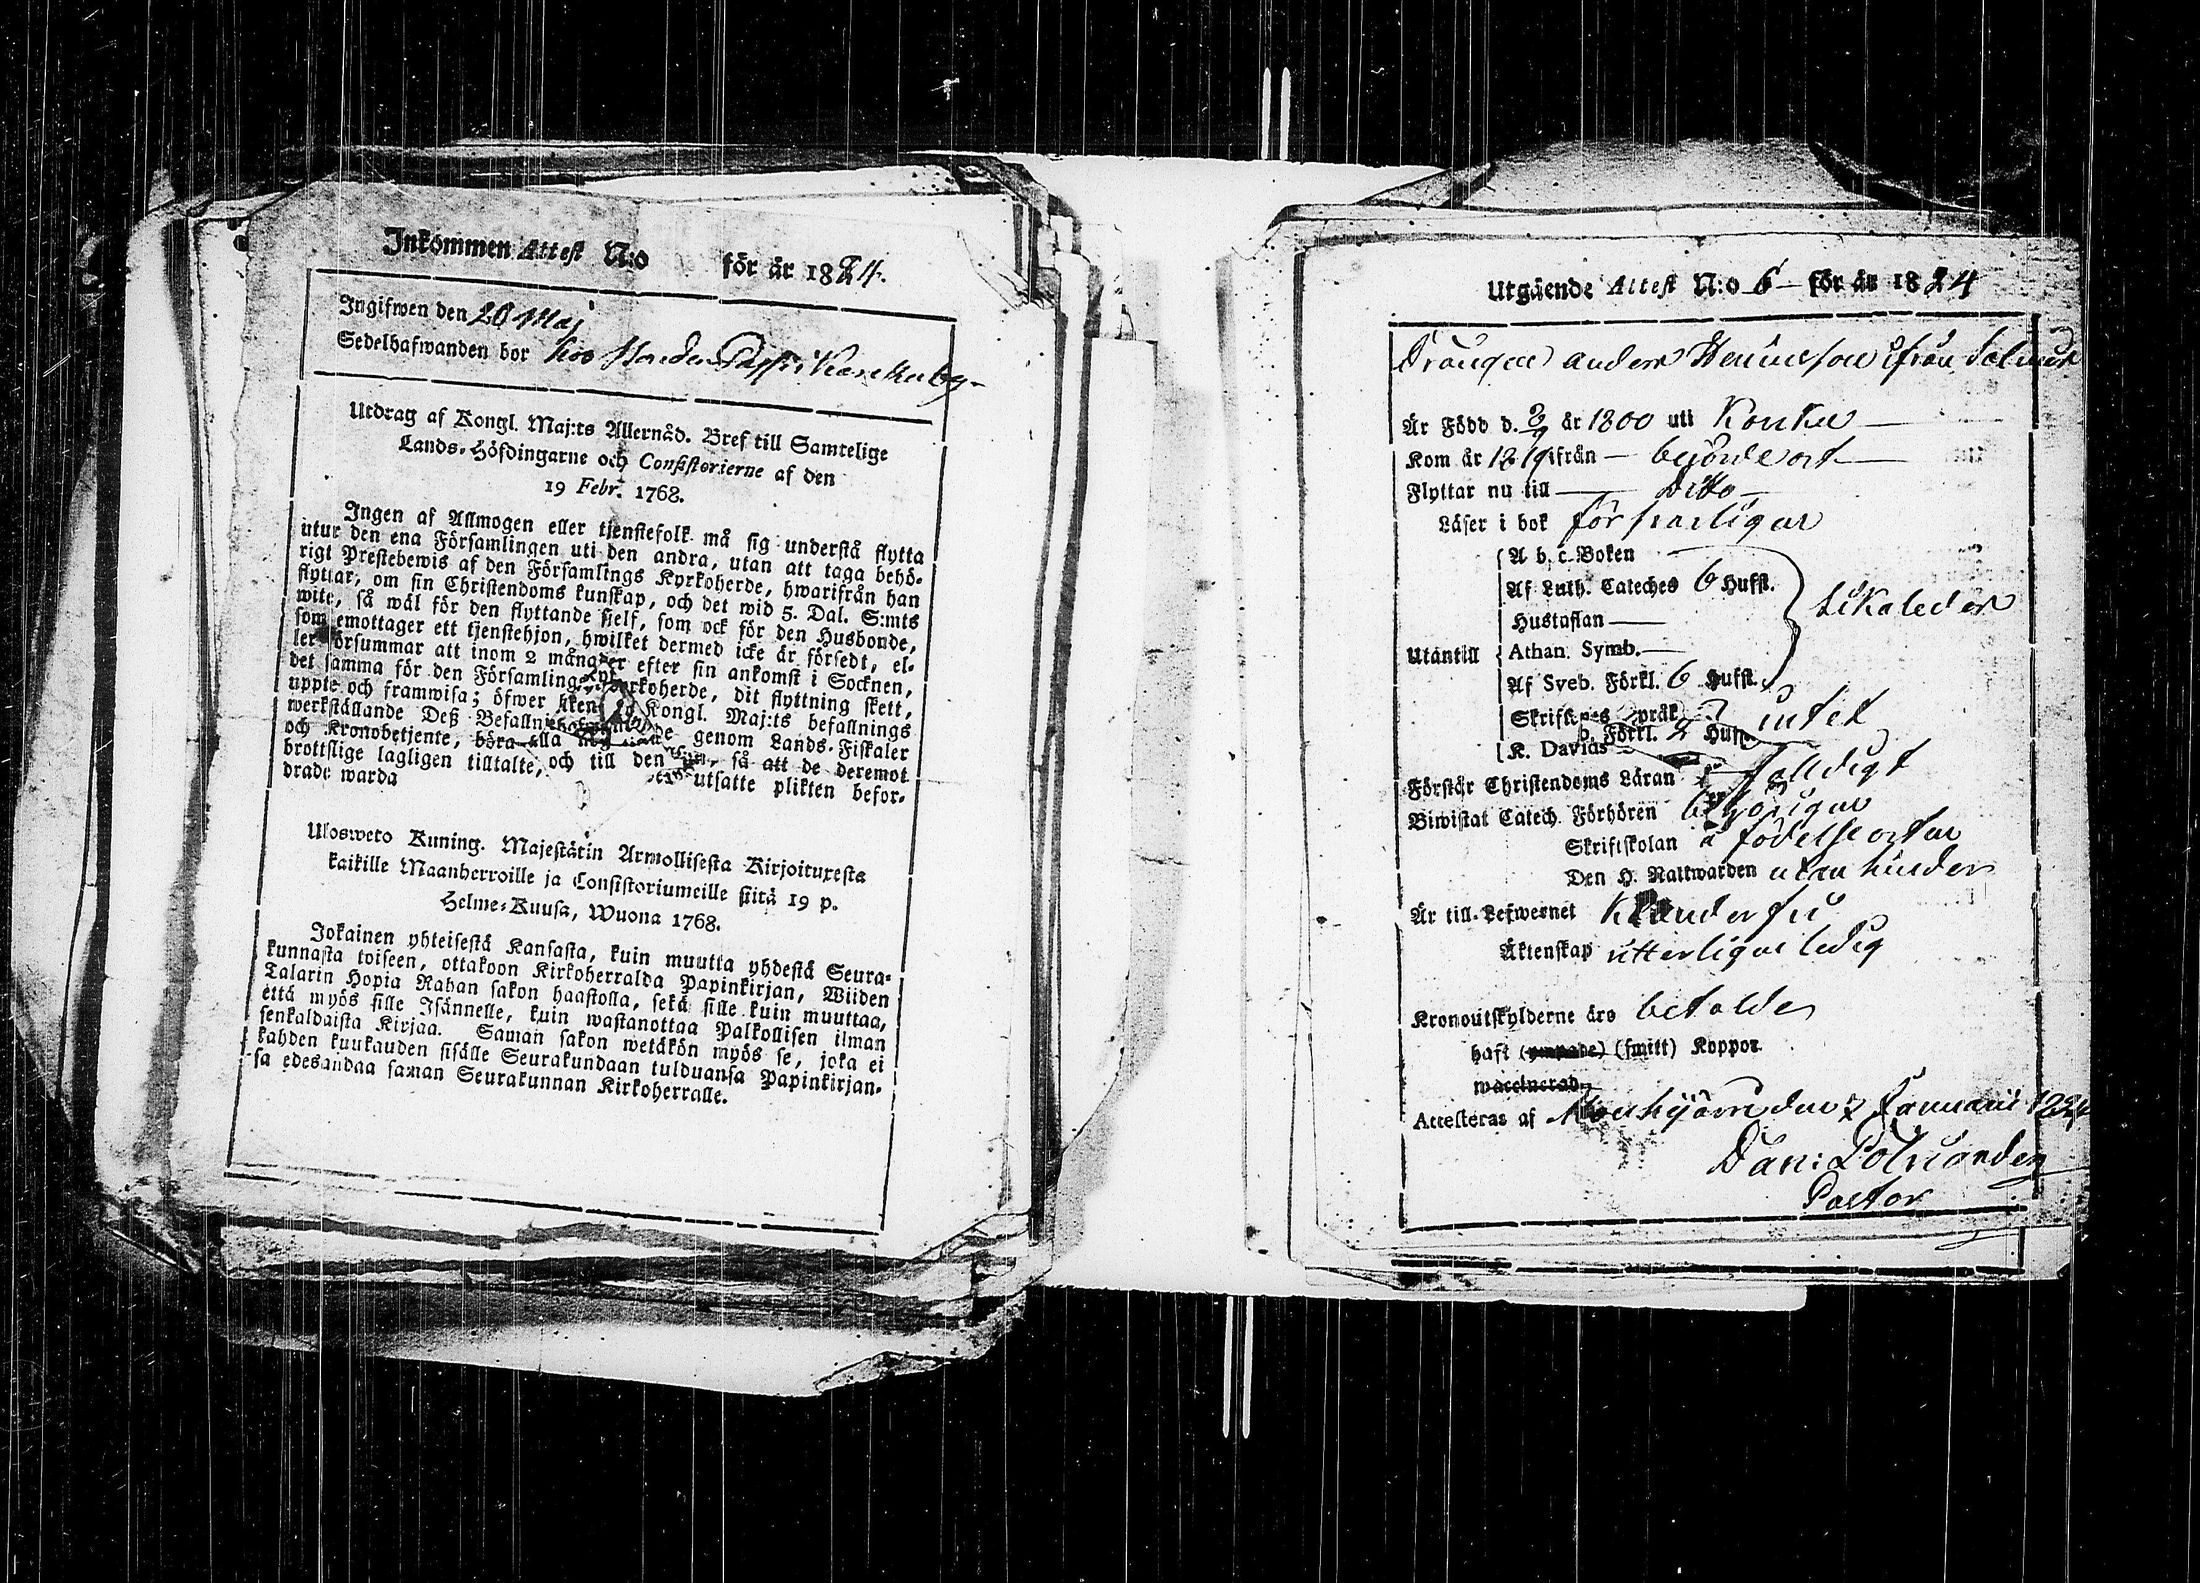 Inkommen Attest N:o för år 1824.
Ingifwen den 20 Maj
Sedelhafwanden bor hos
Utdrag af Kongl. Maj:ts Allernåd. Bref till Samtelige
Lands-Höfdingarne och Consistorierne af den
19 Febr. 1768.
Ingen af Allmogen eller tjenstefolk må sig understå flytta
utur den ena Församlingen uti den andra, utan att taga behö-
rigt Prestebewis af den Församlings Kyrkoherde, hwarifrån han
flyttar, om sin Christendoms kunskap, och det wid 5. Dal. S:mts
wite, så wäl för den flyttande sielf, som ock för den Husbonde,
som emottager ett tjenstehjon, hwilket dermed icke är försedt, el-
ler försummar att inom 2 månader efter sin ankomst i Socknen,
det samma för den Församlings Kyrkoherde, dit flyttning skett,
uppte och framwisa; öfwer Kongl. Maj:ts befallnings
werkställande Deß genom Lands-Fiskaler
och Kronobetjente, böra alla så att de deremot
brottslige lagligen tilltalte, och till den utsatte plikten befor-
drade warda
Ulosweto Kuning. Majestätin Armollisesta Kirjoituxesta
kaikille Maanherroille ja Consistoriumeille siitä 19 p.
Helme-Kuusa, Wuona 1768.
Jokainen yhteisestä Kansasta, kuin muutta yhdestä Seura-
kunnasta toiseen, ottakoon Kirkoherralda Papinkirjan, Wiiden
Talarin Hopia Rahan sakon haastolla, sekä sille kuin muuttaa,
että myös sille Isännelle, kuin wastanottaa Palkollisen ilman
senkaldaista Kirjaa. Saman sakon wetäkön myös se, joka ei
kahden kuukauden sisälle Seurakundaan tulduansa Papinkirjan-
sa edesandaa saman Seurakunnan Kirkoherralle.
Utgående Attest N:o 6 för år 1824
Drängen Anders Henricsson ifrån
Är Född d. 2/9 år 1800 uti Konku
Kom år 1819 ifrån
Flyttar nu till ditto
Läser i bok försvarligen
A b. c. Boken
Af Luth. Cateches 6 Hufst.
Hustaflan likaledes
Utantill Athan. Symb.
Af Sveb. Förkl. 6 Hufst.
Skriftenes Språk intet
b. Förkl. 2 Hufst.
K. Davids
Förstår Christendoms Läran
Biwistat Catech. Förhören behörigen
Skriftskolan å födelseorten
Den H. Nattwarden utan hinder
Är till Lefwernet klanderfri
Äktenskap ytterligen ledig
Kronoutskylderne äro betalde
haft (ympade) (smitt) Koppor.
waccinerad.
Attesteras af den 7 Januarii 1824
Dan:
Pastor